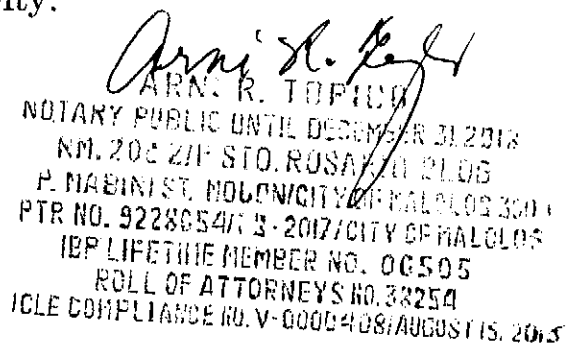 ity.
ARNI R. TOPICO
NOTARY PUBLIC UNTIL DECEMBER 31, 2018
RM. 206 2/F STO. ROSARIO BLDG
P. MABINI ST. MOJON/CITY OF MALOLOS
PTR NO. 9228654/ 2017/CITY OF MALOLOS
IBP LIFETIME MEMBER NO. 06505
ROLL OF ATTORNEYS NO. 38254
COMPLIANCE NO. V-0000408/AUGUST 15, 2015